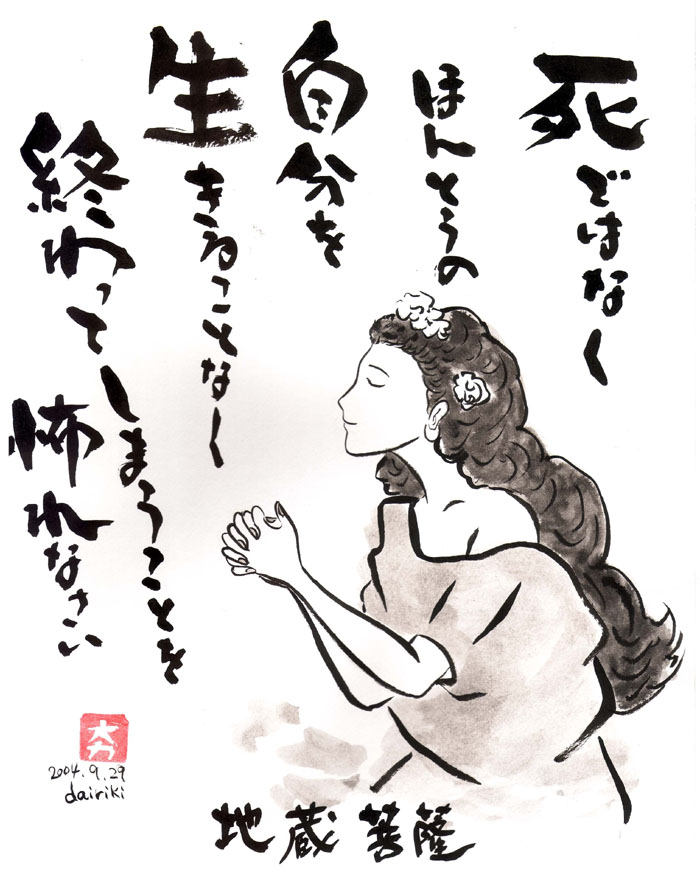 死ではなく
ほんとうの
自分を
生きることなく
終わってしまうことを
怖れなさい
大力
2004.9.29
dairiki
地蔵菩薩